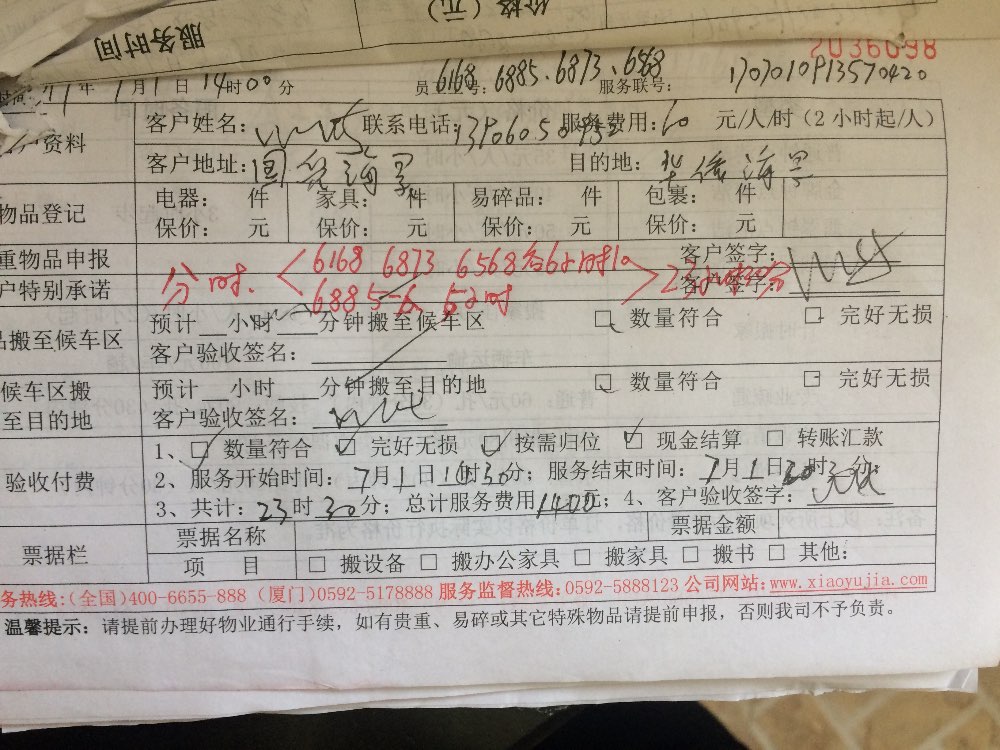 价格（元）
服务时间
2036098
时间: 年7月1日14时00分 员工工号: 6168、6885、6873、6568 服务联号: 1707010913570420
户资料 客户姓名: 联系电话: 服务费用: 60 元/人/时（2小时起/人）
客户地址: 国贸海景 目的地: 华侨海景
物品登记 电器: 件 家具: 件 易碎品: 件 包裹: 件
保价: 元 保价: 元 保价: 元 保价: 元
重物品申报 客户签字:
6168 6873 6568各6小时10
户特别承诺 分时. 客户签字:
6885 5小时
品搬至候车区 预计__小时___分钟搬至候车区 □ 数量符合 □ 完好无损
客户验收签名:
候车区搬至目的地 预计__小时___分钟搬至目的地 □ 数量符合 □ 完好无损
客户验收签名:
验收付费 1、□ 数量符合 ☑ 完好无损 ☑ 按需归位 ☑ 现金结算 □ 转账汇款
2、服务开始时间: 7月1日 时30分; 服务结束时间: 7月1日 时 分;
3、共计: 23时30分; 总计服务费用1400元; 4、客户验收签字:
票据栏 票据名称 票据金额
项 目 □ 搬设备 □ 搬办公家具 □ 搬家具 □ 搬书 □ 其他:
务热线:(全国)400-6655-888 (厦门)0592-5178888 服务监督热线:0592-5888123 公司网站:www.xiaoyujia.com
温馨提示: 请提前办理好物业通行手续，如有贵重、易碎或其它特殊物品请提前申报，否则我司不予负责。